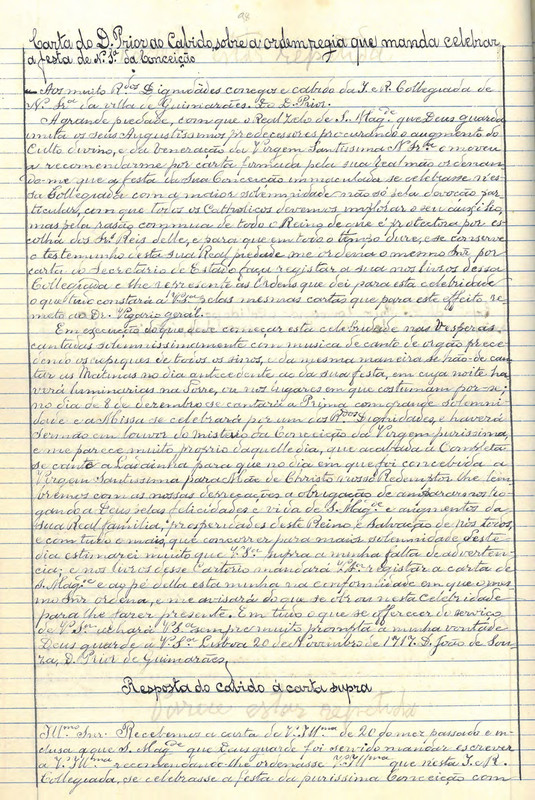 98
Carta do D. Prior ao Cabido, sobre a ordem regia que manda celebrar
a festa de N. Sª. da Conceição
Aos muito Rdos Dignidades conegos e cabido da I. e R. Collegiada de
N. Sra da villa de Guimarães. Do D. Prior.
A grande piedade, com que o Real Zelo de S. Magde que Deus guarda
imita os seus Augustissimos predecessores procurando o augmento do
Culto divino, e da veneração da Virgem Santissima N. Sra o moveu
a recomendarme por carta firmada pela sua real mão ordenan
do-me que a festa da Sua Conceição immaculada se celebrasse n'es
sa Collegiada com a maior solemnidade não só pela devoção par
ticular, com que todos os Catholicos devemos implorar o seu auxilio,
mas pela rasão commua de todo o Reino de que é protectora por es
colha dos Srs Reis delle, e para que em todo o tempo dure, e se conserve
o testemunho desta sua Real piedade me ordena o mesmo Snr por
carta do Secretario de Estado faça registar a sua nos livros dessa
Collegiada e lhe represente as Ordens que dei para esta celebridade
o que tudo constará a V. Sas pelas mesmas cartas que para este effeito re-
meto ao Dr. Vigario geral.
Em execução do que deve começar esta celebridade nas Vesperas
cantadas solemnissimamente com musica de canto de orgão prece-
dendo os repiques de todos os sinos, e da mesma maneira se hão-de can-
tar as Matinas no dia antecedente ao da sua festa, em cuja noite ha-
verá luminarias na Torre, ou nos lugares em que costumam por-se;
no dia de 8 de dezembro se cantará a Prima com grande solemni-
dade e a Missa se celebrará por um dos Rdos Dignidades, e haverá
Sermão em louvor do misterio da Conceição da Virgem purissima,
e me parece muito proprio daquelle dia, que acabada a Completa
se cante a Ladainha para que no dia em que foi concebida a
Virgem Santissima para Mãe de Christo nosso Redemptor lhe lem
bremos com as nossas deprecações a obrigação de ampararnos ro-
gando a Deus pelas felicidades e vida de S. Magde e augmentos da
sua Real familia; prosperidades deste Reino, e salvação de nós todos,
e com tudo o mais, que concorrer para maior solemnidade deste
dia estimarei muito que V. Sas supra a minha falta de adverten-
cia; e nos livros desse Cartorio mandará V. Sas registar a carta de
S. Magde e ao pé della esta minha na conformidade em que o mes-
mo Snr ordena, e me avisará do que se obrou nesta Celebridade
para lh'o fazer presente. Em tudo o que se offerecer do serviço
de V. Sas achará V. Sas sempre muito prompta a minha vontade
Deus guarde a V. Sas Lisboa 20 de Novembro de 1717. D. João de Sou-
za, D. Prior de Guimarães.
Resposta do cabido á carta supra
Illmo Snr. Recebemos a carta de V. Illma de 20 do mez passado e in-
clusa a que S. Magde que Deus guarde foi servido mandar escrever
a V. Illma recomendando-lhe ordenasse V. Illma que nesta I. e R.
Collegiada, se celebrasse a festa da purissima Conceição com